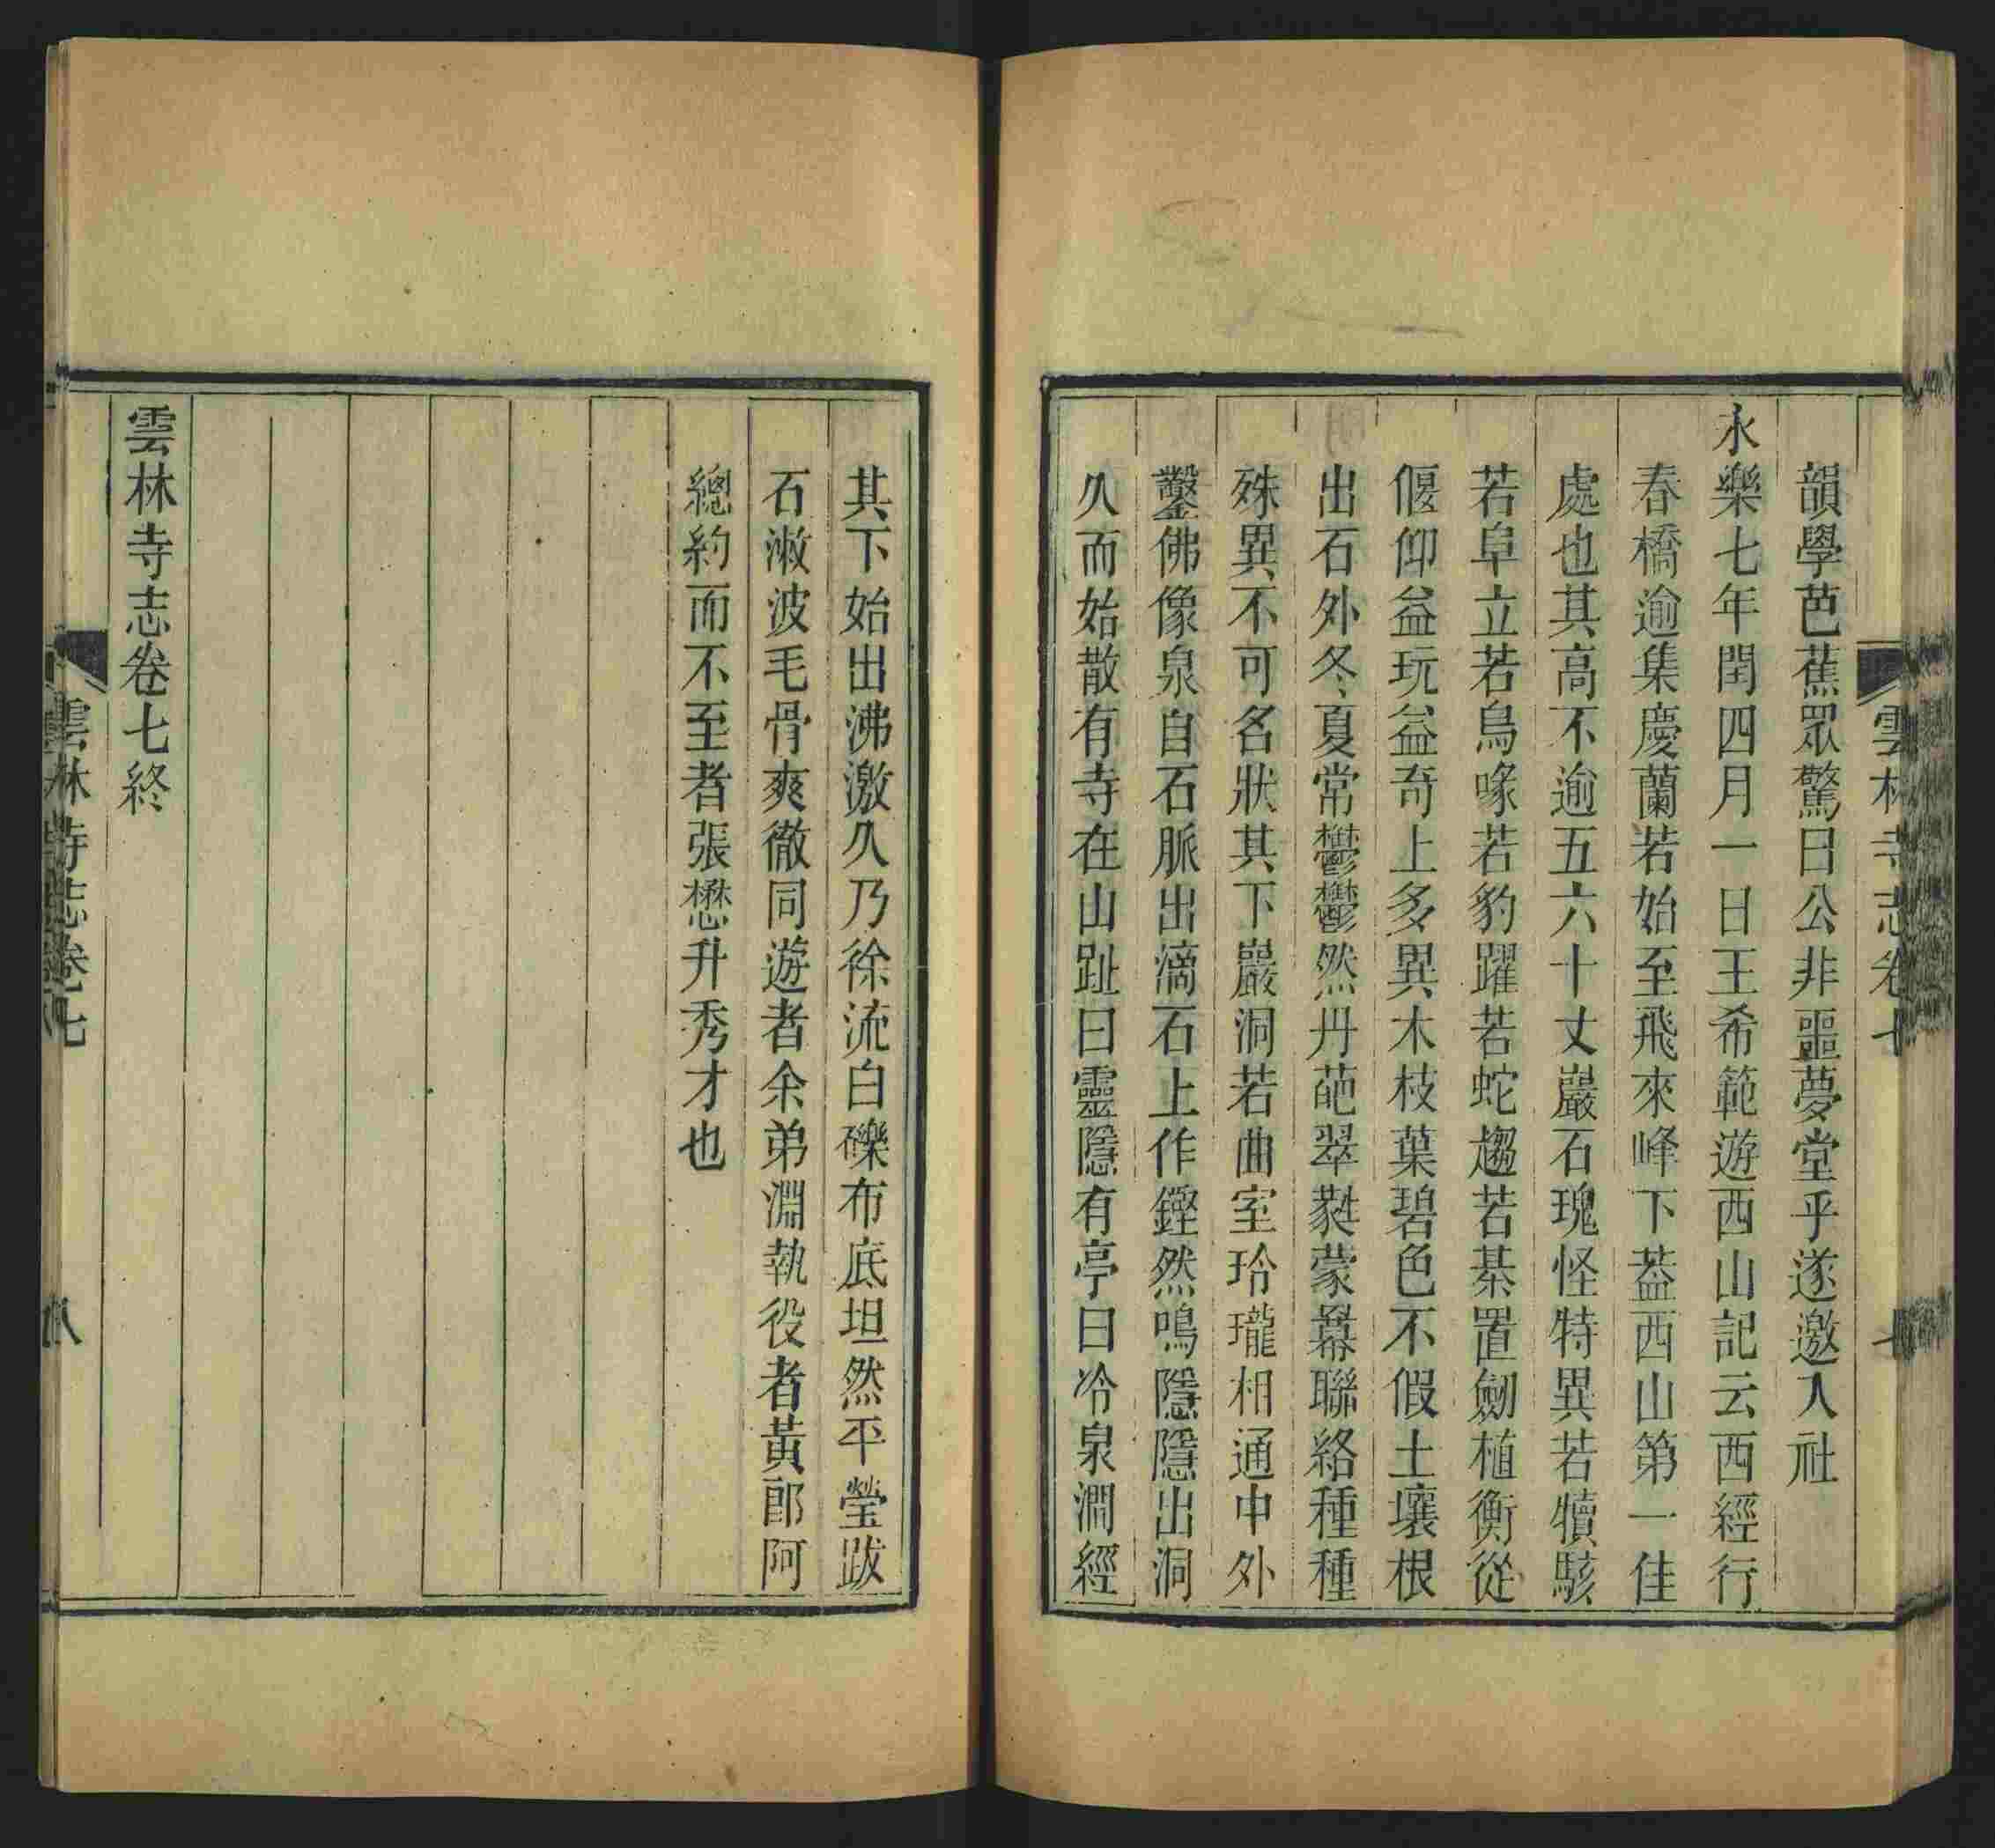 雲林寺志卷七
七
韻學芭蕉眾驚曰公非噩夢堂乎遂邀入社
永樂七年閏四月一日王希範遊西山記云西經行
春橋逾集慶蘭若始至飛來峰下葢西山第一佳
處也其高不逾五六十丈巖石瑰怪特異若犢駭
若阜立若鳥喙若豹躍若蛇趨若棊置劒植衡從
偃仰益玩益奇上多異木枝葉碧色不假土壤根
出石外冬夏常鬱鬱然丹葩翠蕤蒙羃聯絡種種
殊異不可名狀其下巖洞若曲室玲瓏相通中外
鑿佛像泉自石脈出滴石上作鏗然鳴隱隱出洞
久而始散有寺在山趾曰靈隱有亭曰冷泉澗經
其下始出沸激久乃徐流白礫布底坦然平瑩跋
石漱波毛骨爽徹同遊者余弟淵執役者黃郎阿
總約而不至者張懋升秀才也
雲林寺志卷七終
雲林寺志卷七
八